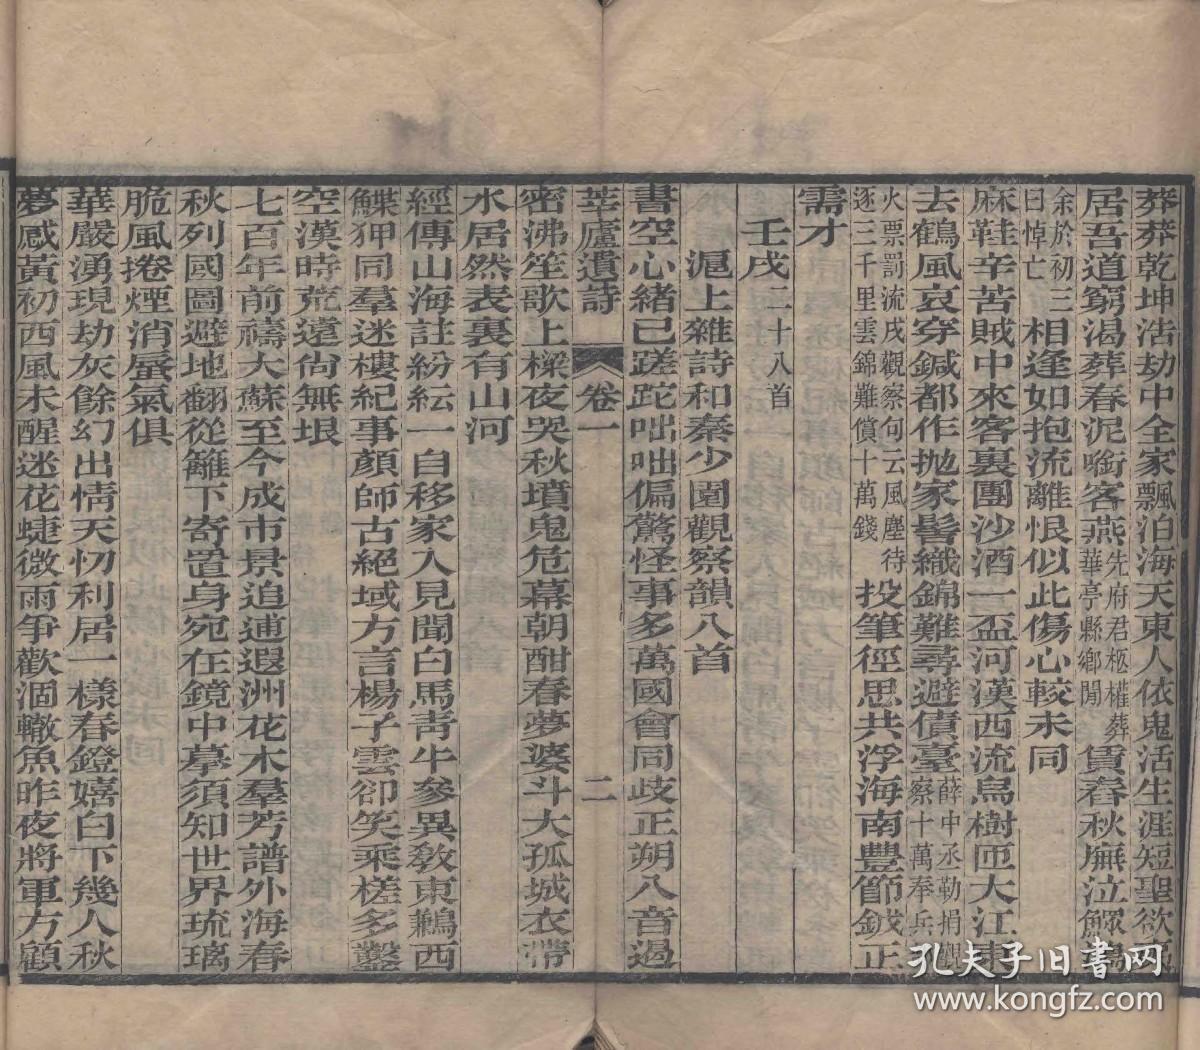 莽莽乾坤浩劫中全家飄泊海天東人依鬼活生涯短聖欲
居吾道窮渴葬春泥啣客燕先府君柩權葬華亭縣鄉間賃舂秋廡泣鰥
余於初三日悼亡相逢如抱流離恨似此傷心較未同
麻鞋辛苦賊中來客裏團沙酒一盃河漢西流烏樹匝大江東
去鶴風哀穿鍼都作拋家髻織錦難尋避債臺薛中丞勒捐觀察十萬奉兵
火票罰流戍觀察句云風塵待逐三千里雲錦難償十萬錢投筆徑思共浮海南豐節鉞正
需才
壬戌二十八首
滬上雜詩和秦少園觀察韻八首
書空心緒已蹉跎咄咄偏驚怪事多萬國會同歧正朔八音遏
莘廬遺詩 卷一 二
密沸笙歌上樑夜哭秋墳鬼危幕朝酣春夢婆斗大孤城衣帶
水居然表裏有山河
經傳山海註紛紜一自移家入見聞白馬青牛參異敎東鶼西
鰈狎同羣迷樓紀事顏師古絕域方言楊子雲卻笑乘槎多鑿
空漢時荒遠尙無垠
七百年前禱大蘇至今成市景追逋遐洲花木羣芳譜外海春
秋列國圖避地翻從籬下寄置身宛在鏡中摹須知世界琉璃
脆風捲煙消蜃氣俱
華嚴湧現劫灰餘幻出情天忉利居一樣春鐙嬉白下幾人秋
夢感黃初西風未醒迷花蜨微雨爭歡涸轍魚昨夜將軍方顧
孔夫子旧书网
www.kongfz.com